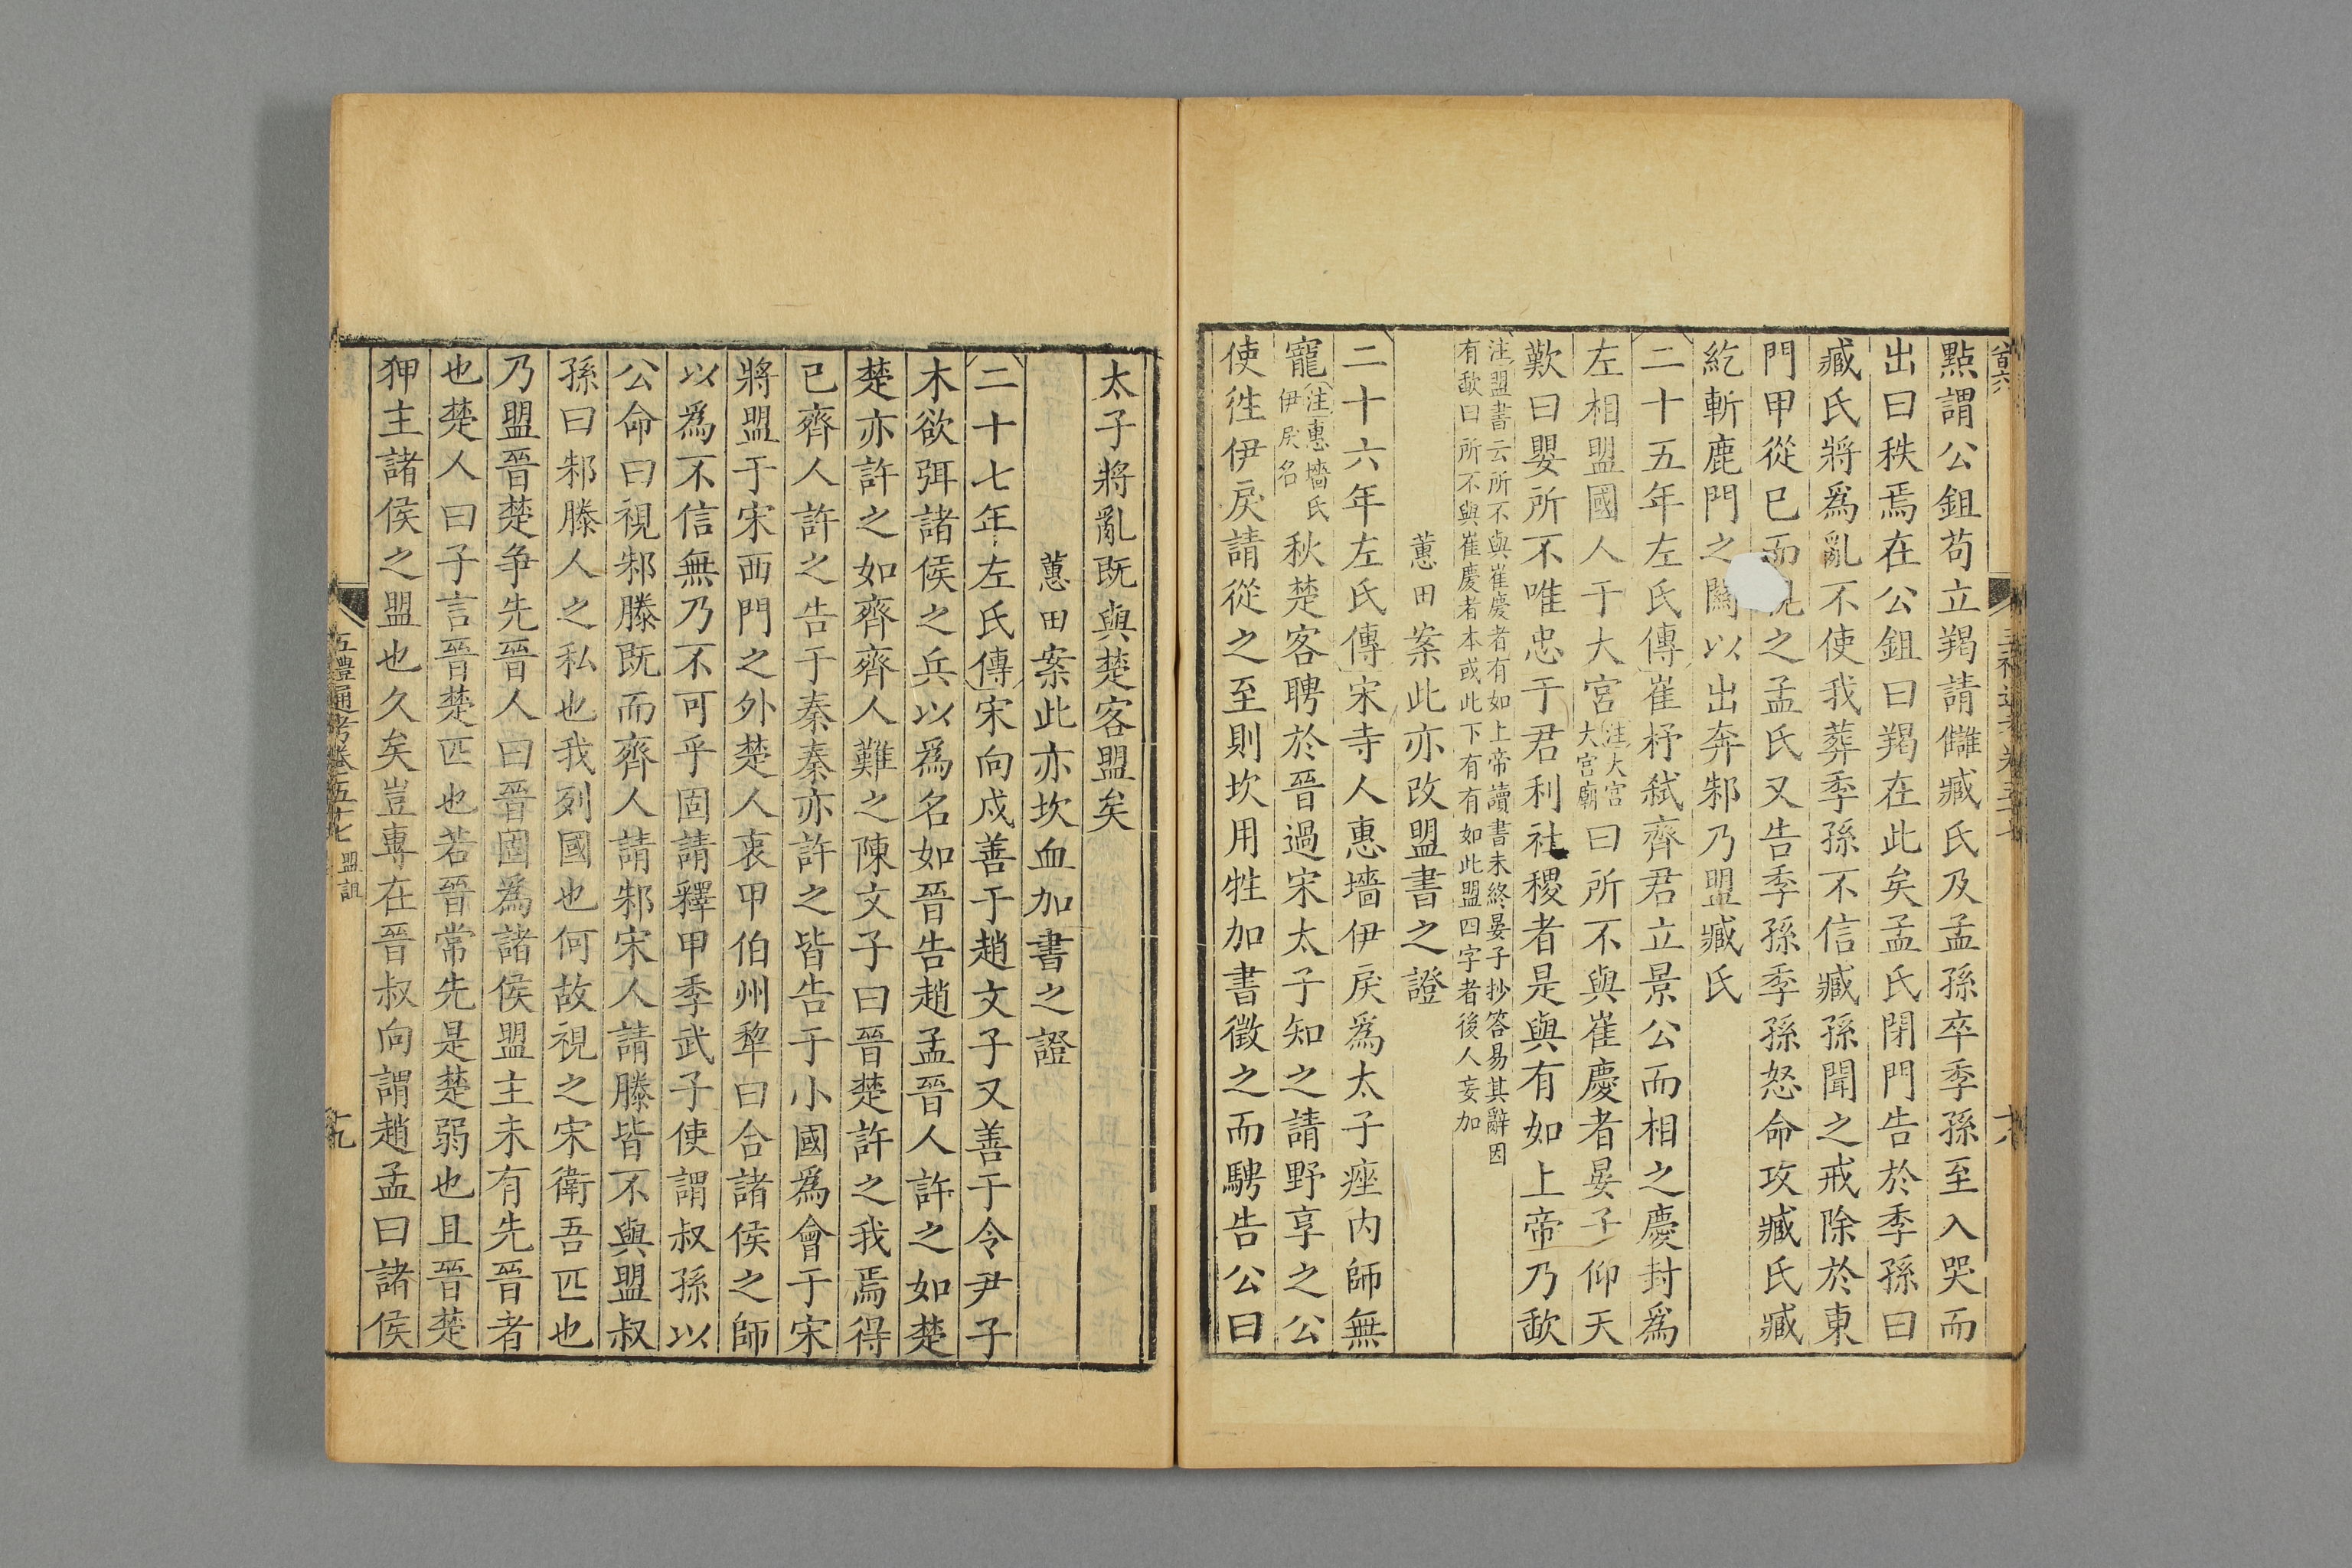 點謂公鉏苟立羯請讎臧氏及孟孫卒季孫至入哭而
出曰秩焉在公鉏曰羯在此矣孟氏閉門告於季孫曰
臧氏將爲亂不使我葬季孫不信臧孫聞之戒除於東
門甲從已而視之孟氏又告季孫季孫怒命攻臧氏臧
紇斬鹿門之關以出奔邾乃盟臧氏
二十五年左氏傳崔杼弑齊君立景公而相之慶封爲
左相盟國人于大宮注大宮大宮廟曰所不與崔慶者晏子仰天
歎曰嬰所不唯忠于君利社稷者是與有如上帝乃歃
注盟書云所不與崔慶者有如上帝讀書未終晏子抄答易其辭因
有歃曰所不與崔慶者本或此下有有如此盟四字者後人妄加
蕙田案此亦改盟書之證
二十六年左氏傳宋寺人惠墻伊戾爲太子痤內師無
寵注惠墻氏伊戾名秋楚客聘於晉過宋太子知之請野享之公
使往伊戾請從之至則坎用牲加書徵之而騁告公曰
太子將亂既與楚客盟矣
蕙田案此亦坎血加書之證
二十七年左氏傳宋向戍善于趙文子又善于令尹子
木欲弭諸侯之兵以爲名如晉告趙孟晉人許之如楚
楚亦許之如齊齊人難之陳文子曰晉楚許之我焉得
已齊人許之告于秦秦亦許之皆告于小國爲會于宋
將盟于宋西門之外楚人衷甲伯州犂曰合諸侯之師
以爲不信無乃不可乎固請釋甲季武子使謂叔孫以
公命曰視邾滕既而齊人請邾宋人請滕皆不與盟叔
孫曰邾滕人之私也我列國也何故視之宋衛吾匹也
乃盟晉楚爭先晉人曰晉固爲諸侯盟主未有先晉者
也楚人曰子言晉楚匹也若晉常先是楚弱也且晉楚
狎主諸侯之盟也久矣豈專在晉叔向謂趙孟曰諸侯
五禮通考卷五十七 盟詛 十九